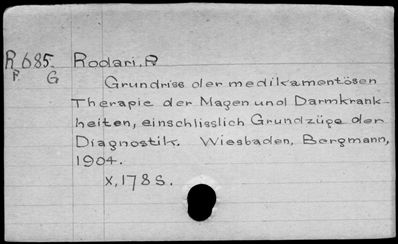 R 685. Rodari. P
P. G
Grundriss der medikamentösen
Therapie der Magen und Darmkrank-
heiten, einschlisslich Grundzüge der
Diagnostik. Wiesbaden, Bergmann,
1904.
X, 178 S.